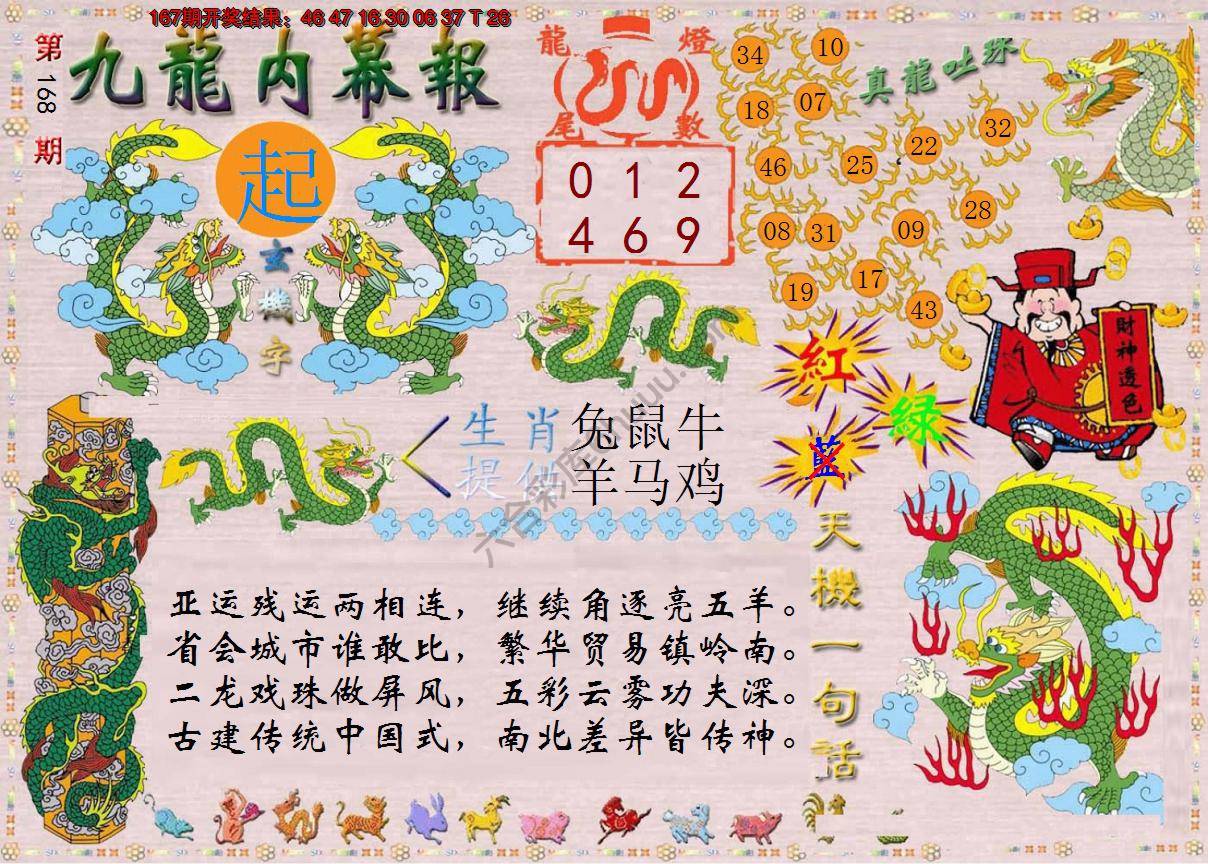 167期开奖结果：46 47 16 30 06 37 T 26
第168期
九龍内幕報
起
玄機字
龍燈尾數
0 1 2
4 6 9
真龍吐珠
34 10
18 07
22 32
46 25
28
08 31 09
17
19 43
財神透色
紅
綠
藍
生肖 兔鼠牛
提供 羊马鸡
天機一句話
亚运残运两相连，继续角逐亮五羊。
省会城市谁敢比，繁华贸易镇岭南。
二龙戏珠做屏风，五彩云雾功夫深。
古建传统中国式，南北差异皆传神。